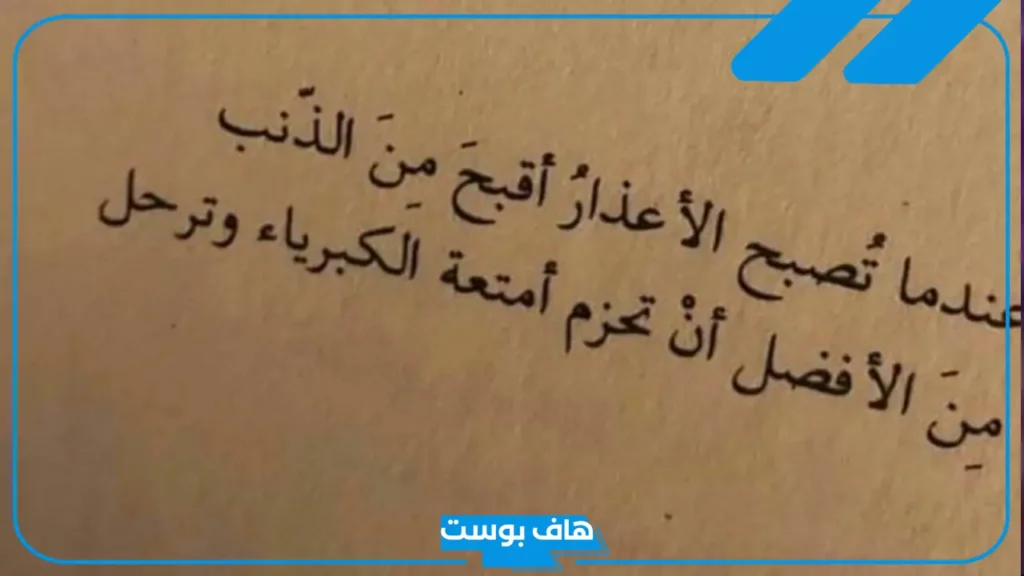 عندما تُصبح الأعذارُ أقبحَ مِنَ الذّنب
مِنَ الأفضل أنْ تحزم أمتعة الكبرياء وترحل
هاف بوست